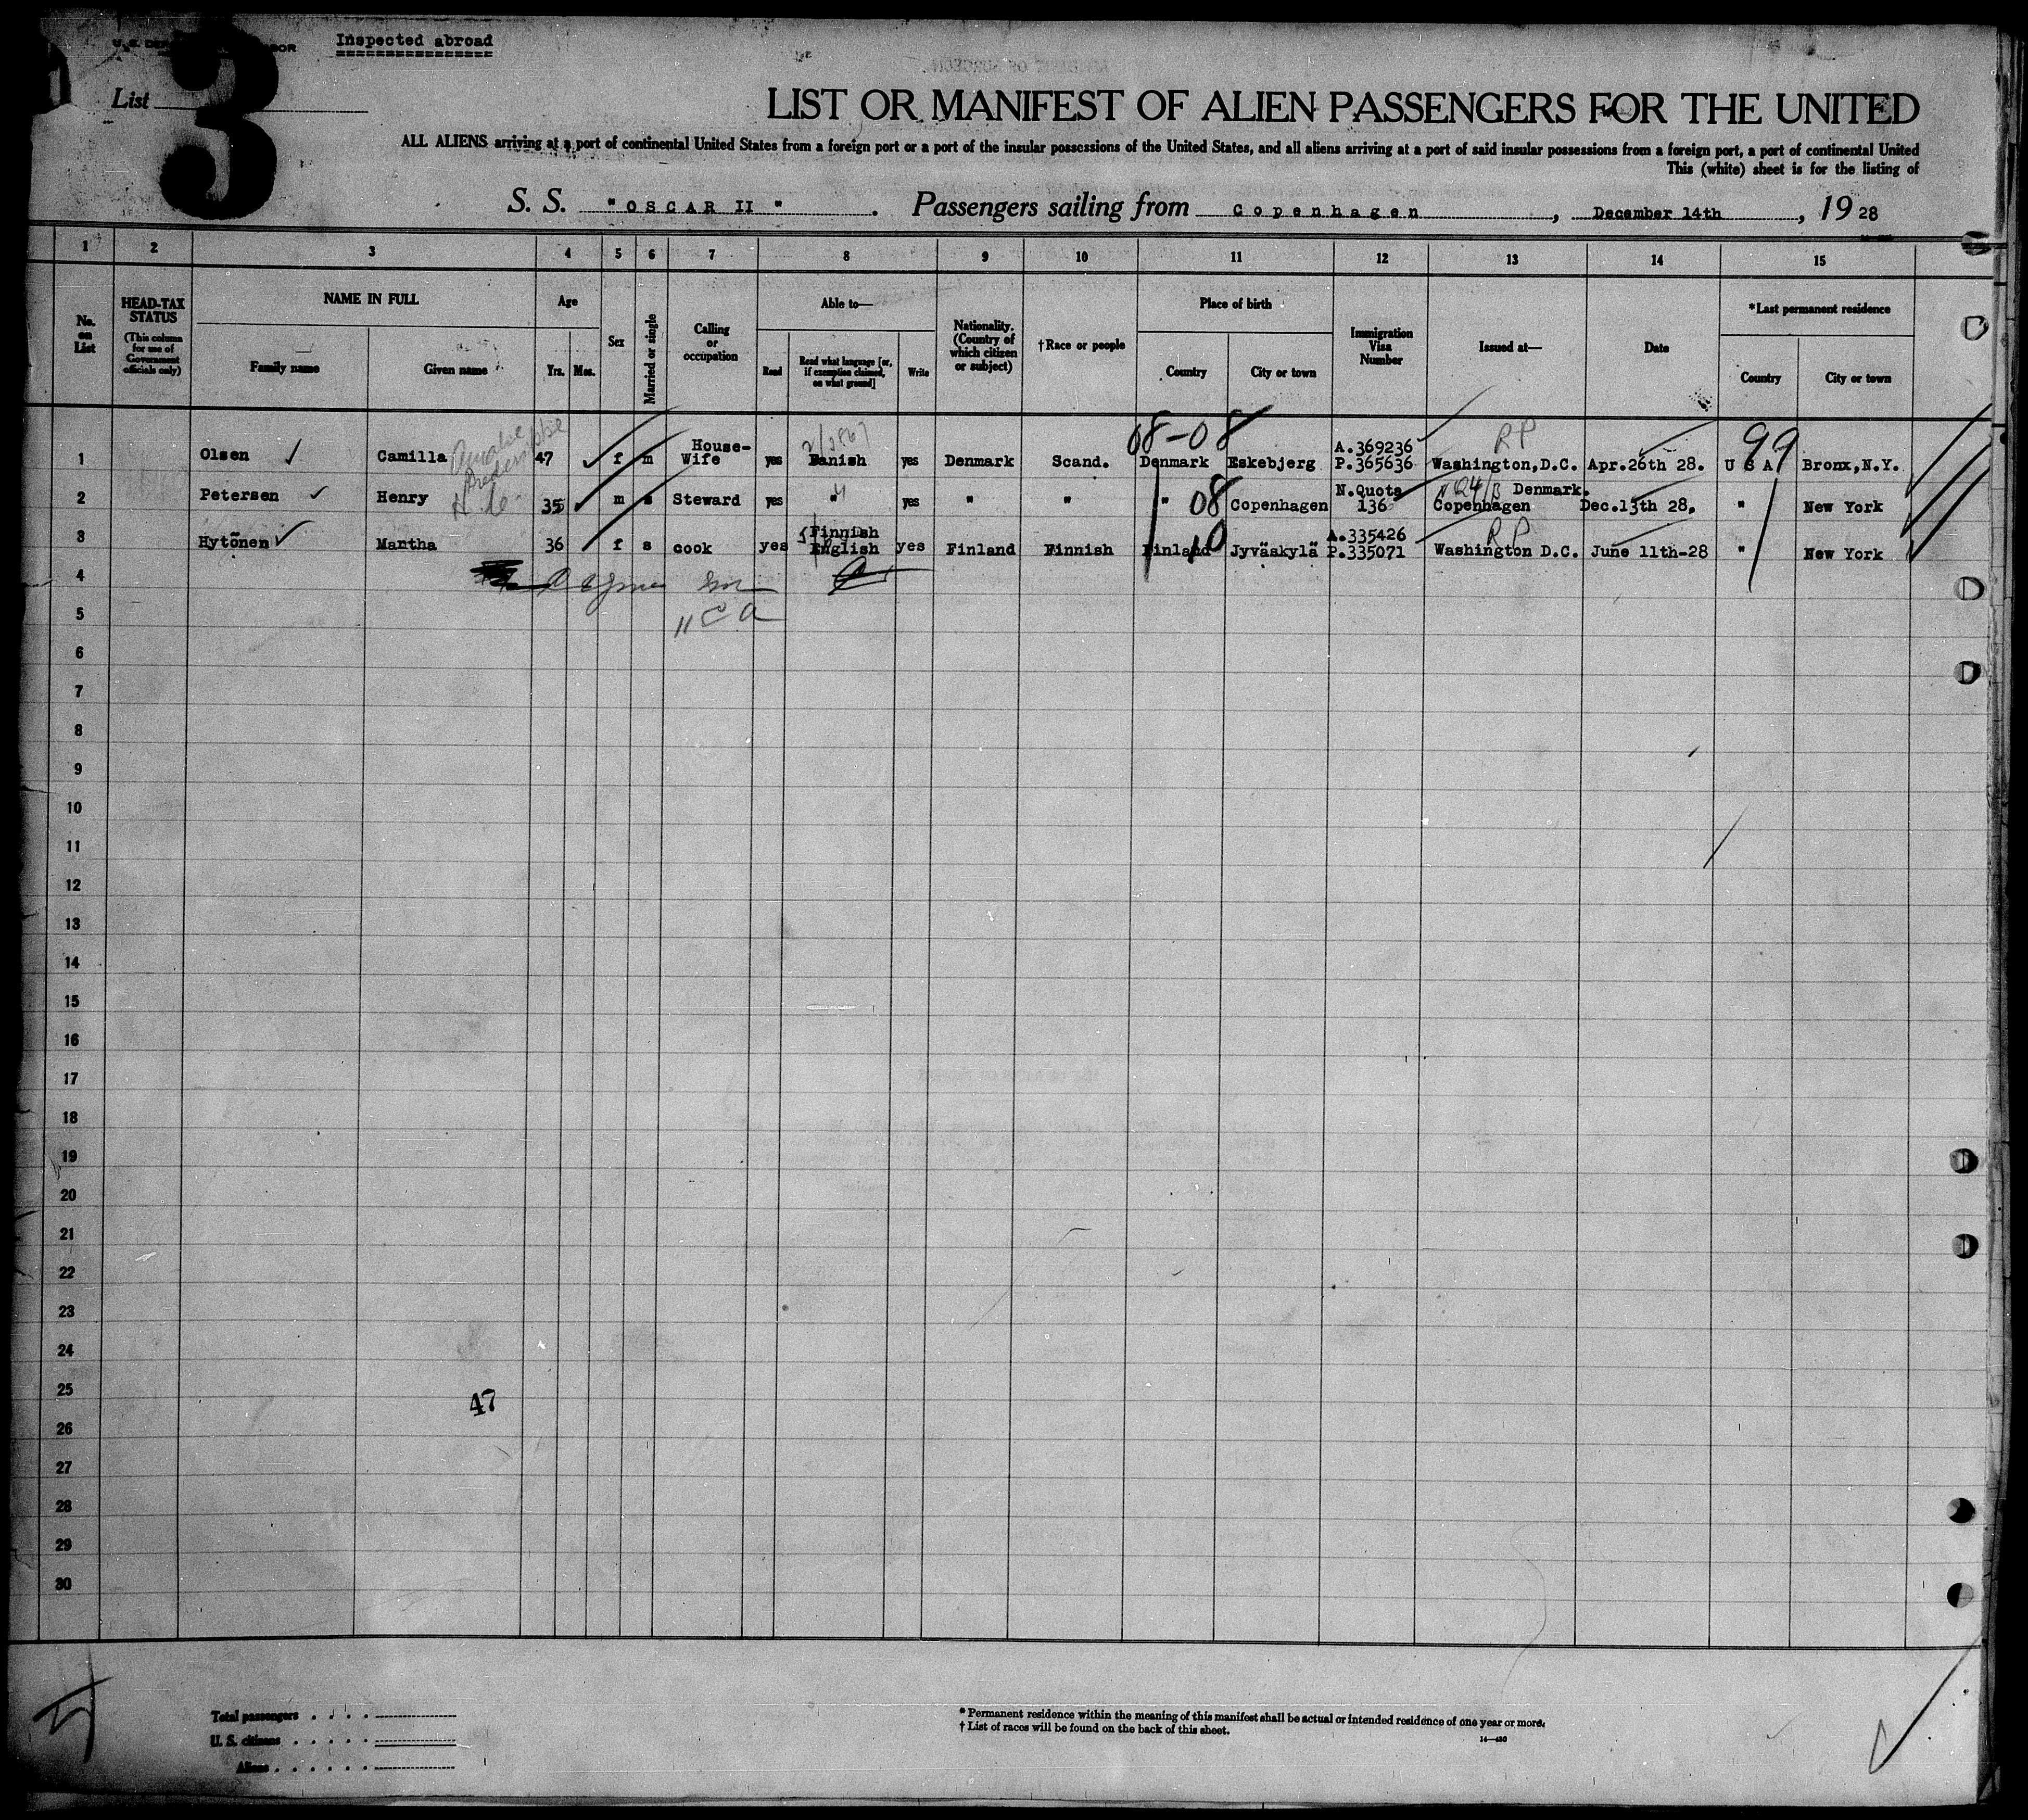 U. S. DEP
BOR
Inspected abroad
List
3
LIST OR MANIFEST OF ALIEN PASSENGERS FOR THE UNITED
ALL ALIENS arriving at a port of continental United States from a foreign port or a port of the insular possessions of the United States, and all aliens arriving at a port of said insular possessions from a foreign port, a port of continental United
This (white) sheet is for the listing of
S. S. "OSCAR II". Passengers sailing from Copenhagen, December 14th, 1928
1 2 3 4 5 6 7 8 9 10 11 12 13 14 15
No. on List
HEAD-TAX STATUS
(This column for use of Government officials only)
NAME IN FULL
Family name Given name
Age
Yrs. Mos.
Sex
Married or single
Calling or occupation
Able to—
Read
Read what language [or, if exemption claimed, on what ground]
Write
Nationality. (Country of which citizen or subject)
†Race or people
Place of birth
Country City or town
Immigration Visa Number
Issued at—
Date
*Last permanent residence
Country City or town
08-08 RP 99
1 Olsen Camilla 47 f m House-Wife yes Danish yes Denmark Scand. Denmark Eskebjerg A.369236 P.365636 Washington, D.C. Apr.26th 28. U S A Bronx, N.Y.
2 Petersen Henry 35 m s Steward yes " yes " " " 08 Copenhagen N.Quota 136 Copenhagen Denmark. Dec.13th 28. " New York
10 RP
3 Hytönen Martha 36 f s cook yes Finnish English yes Finland Finnish Finland Jyväskylä A.335426 P.335071 Washington D.C. June 11th-28 " New York
4
5
6
7
8
9
10
11
12
13
14
15
16
17
18
19
20
21
22
23
24
25
47
26
27
28
29
30
Total passengers . . . .
U. S. citizens . . . . .
Aliens . . . . . .
* Permanent residence within the meaning of this manifest shall be actual or intended residence of one year or more.
† List of races will be found on the back of this sheet.
14—430